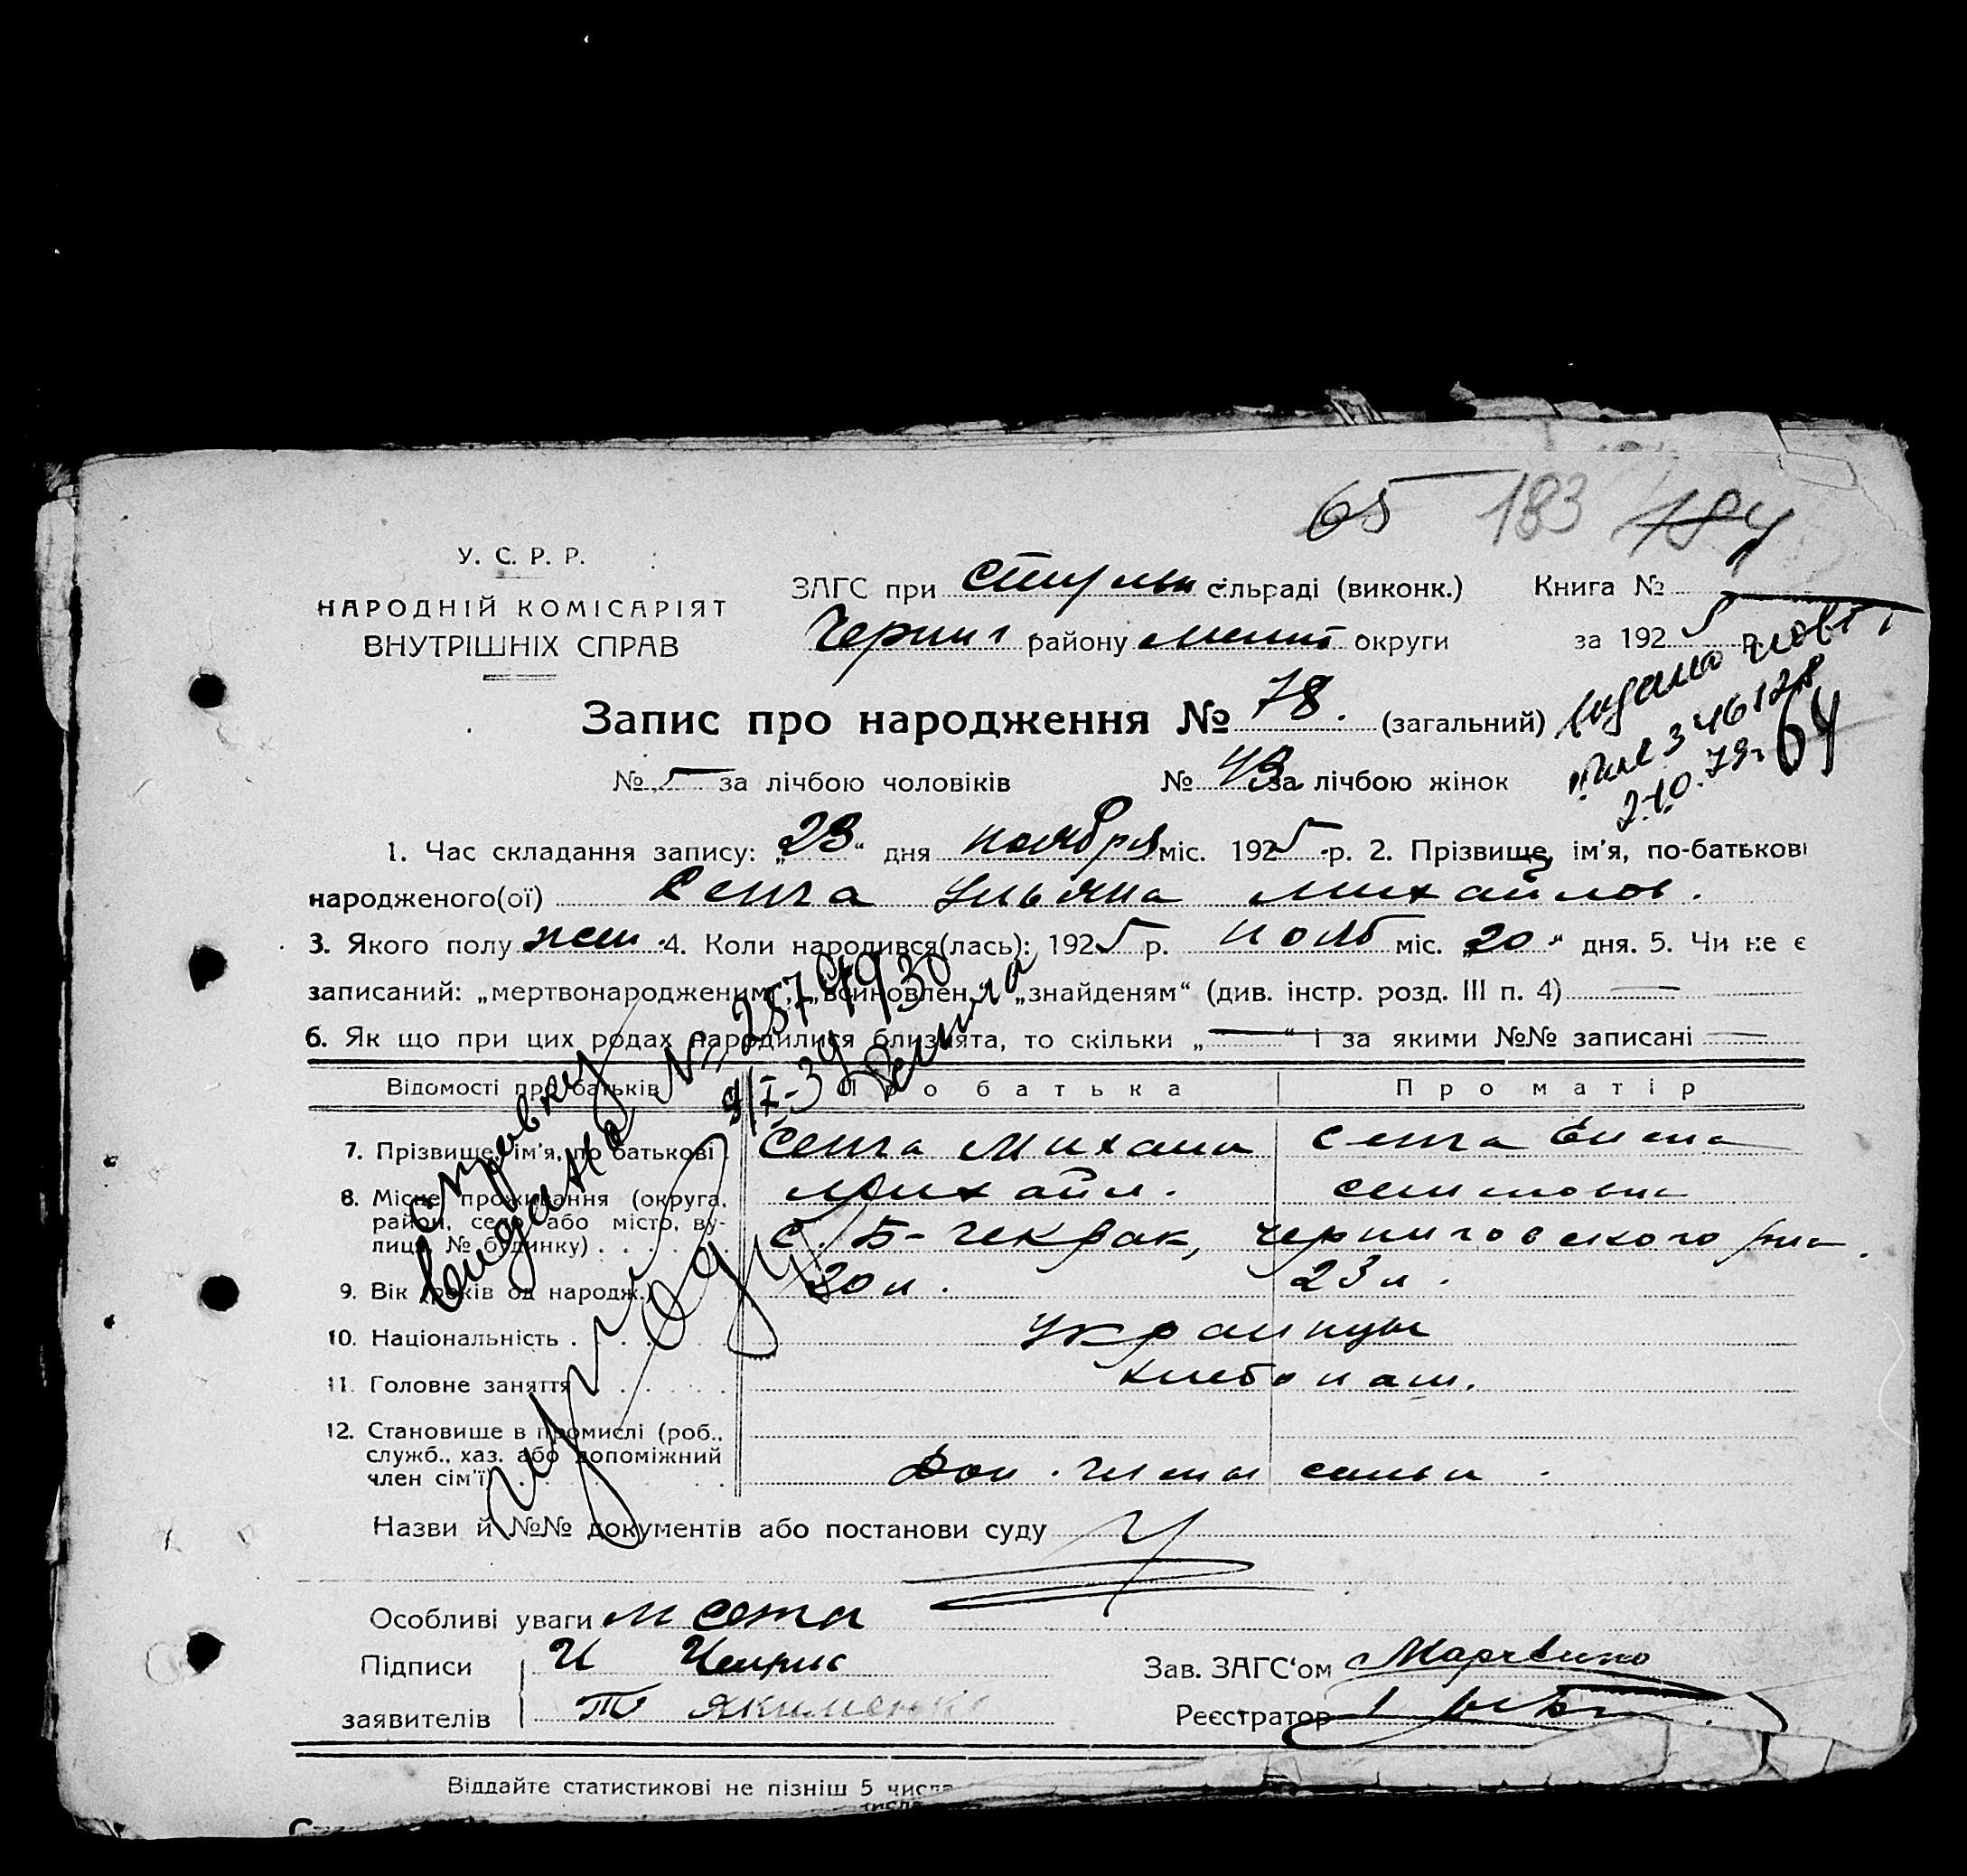 65 183 184
У. С. Р. Р.
НАРОДНІЙ КОМІСАРІЯТ
ВНУТРІШНІХ СПРАВ
ЗАГС при сільраді (виконк.) Книга №
Черниг району Мелит округи за 1925 р.
Запис про народження № 78. (загальний)
2.10.79г 64
№ за лічбою чоловіків № 43 за лічбою жінок
1. Час складання запису: „23“ дня ноября міс. 1925 р. 2. Прізвище, ім'я, по-батькові
народженого(ої) Сепга Ульяна Михайлов.
3. Якого полу жен. 4. Коли народився(лась): 1925 р. нояб міс. „20“ дня. 5. Чи не є
записаний: „мертвонародженим“, „всиновлен.“ „знайденям“ (див. інстр. розд. III п. 4)
6. Як що при цих родах народилися близнята, то скільки „—“ і за якими №№ записані —
Справку
видана №
Відомості про батьків Про батька Про матір
7. Прізвище, ім'я, по батькові Сепга Михаил Сепга Елена
8. Місце проживання (округа, Михайл. семеновна
район, село або місто, ву-
лиця, № будинку) с. Б-Текрак, Черниговского р-на.
9. Вік (років од народж.) 20 л. 23 л.
10. Національність Украинцы
11. Головне заняття хлебопаш.
12. Становище в промислі (роб.,
служб., хаз. або допоміжний
член сім'ї) Доп. члены семьи.
Назви й №№ документів або постанови суду
Особливі уваги М Сепга
Підписи И
заявителів Т Якименко
Зав. ЗАГС‘ом
Реєстратор
Віддайте статистикові не пізніш 5 числа